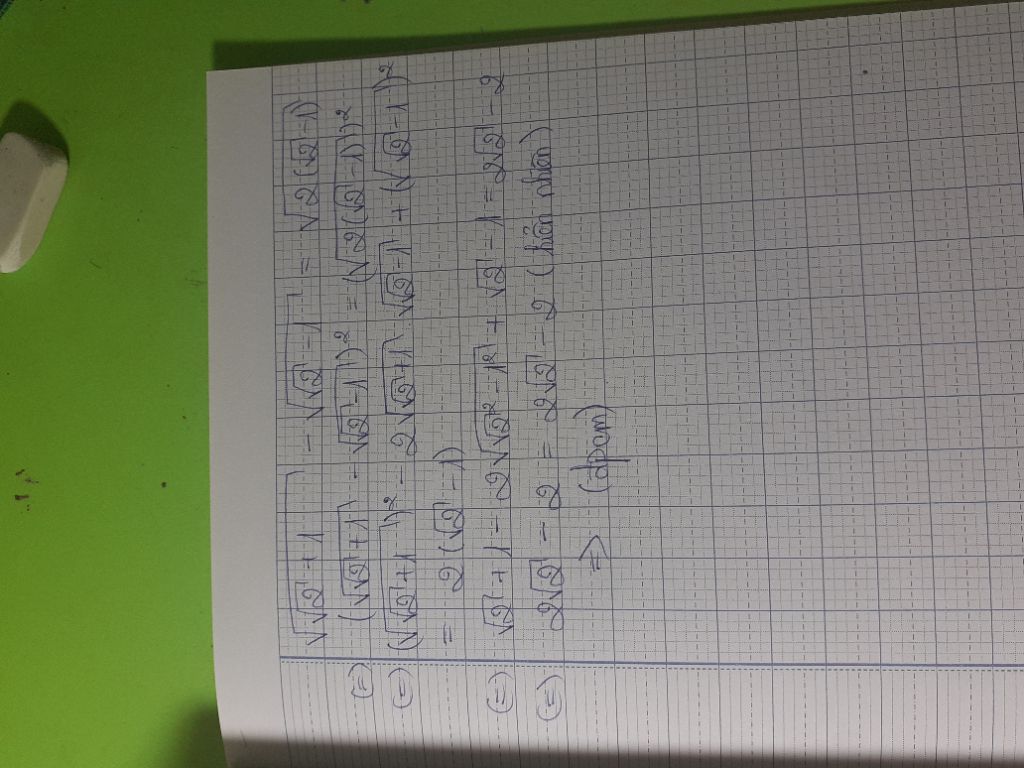 √(√2 + 1) - √(√2 - 1) = √(2(√2 - 1))
(=) (√(√2 + 1) - √(√2 - 1))² = (√(2(√2 - 1)))²
(=) (√(√2 + 1))² - 2√(√2 + 1) . √(√2 - 1) + (√(√2 - 1))²
= 2(√2 - 1)
(=) √2 + 1 - 2√(√2² - 1²) + √2 - 1 = 2√2 - 2
(=) 2√2 - 2 = 2√2 - 2 (hiển nhiên)
=> (đpcm)